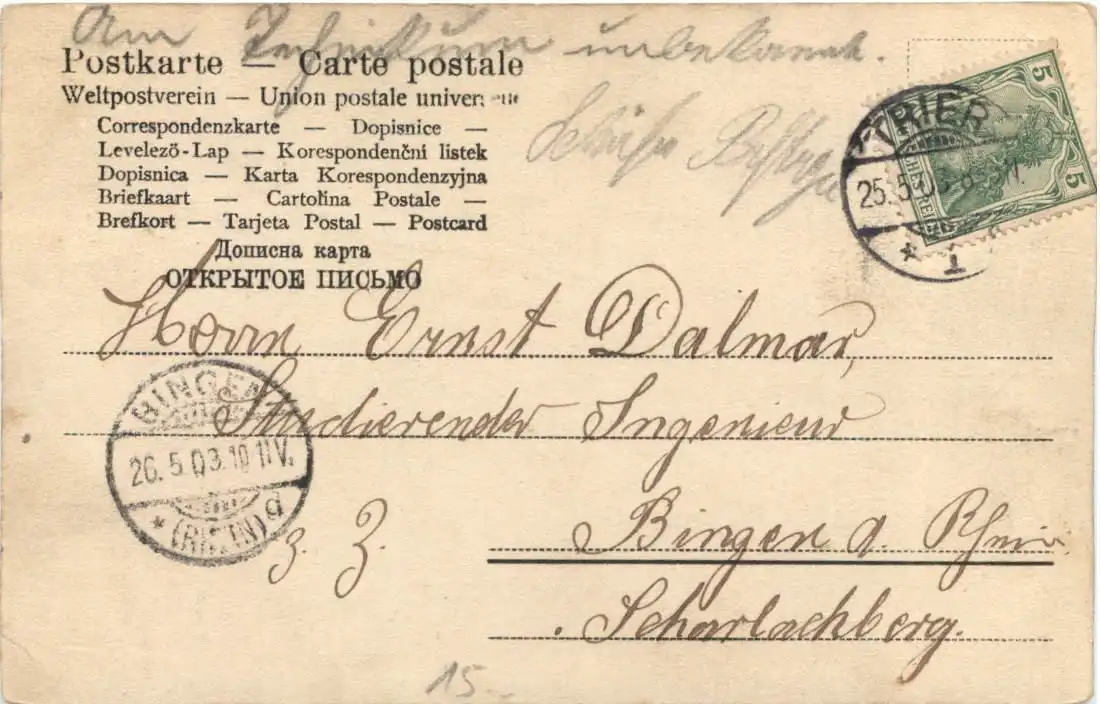 Am Technikum unbekannt.
Postkarte — Carte postale
Weltpostverein — Union postale univer
Correspondenzkarte — Dopisnice —
Levelező-Lap — Korespondenční listek
Dopisnica — Karta Korespondenzyjna
Briefkaart — Cartolina Postale —
Brefkort — Tarjeta Postal — Postcard
Дописна карта
ОТКРЫТОЕ ПИСЬМО
TRIER
25.5.03
* 1
5
5
Herrn Ernst Dalmar,
Studierender Ingenieur
BINGEN
26.5.03.10-11V.
* (RHEIN) d
z. Z.
Bingen a. Rhein
Scharlachberg.
15.-